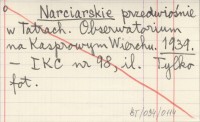 Narciarskie przedwiośnie
w Tatrach. Obserwatorium
na Kasprowym Wierchu. 1939.
– IKC nr 98, il. Tylko
fot.
BT/034/0114